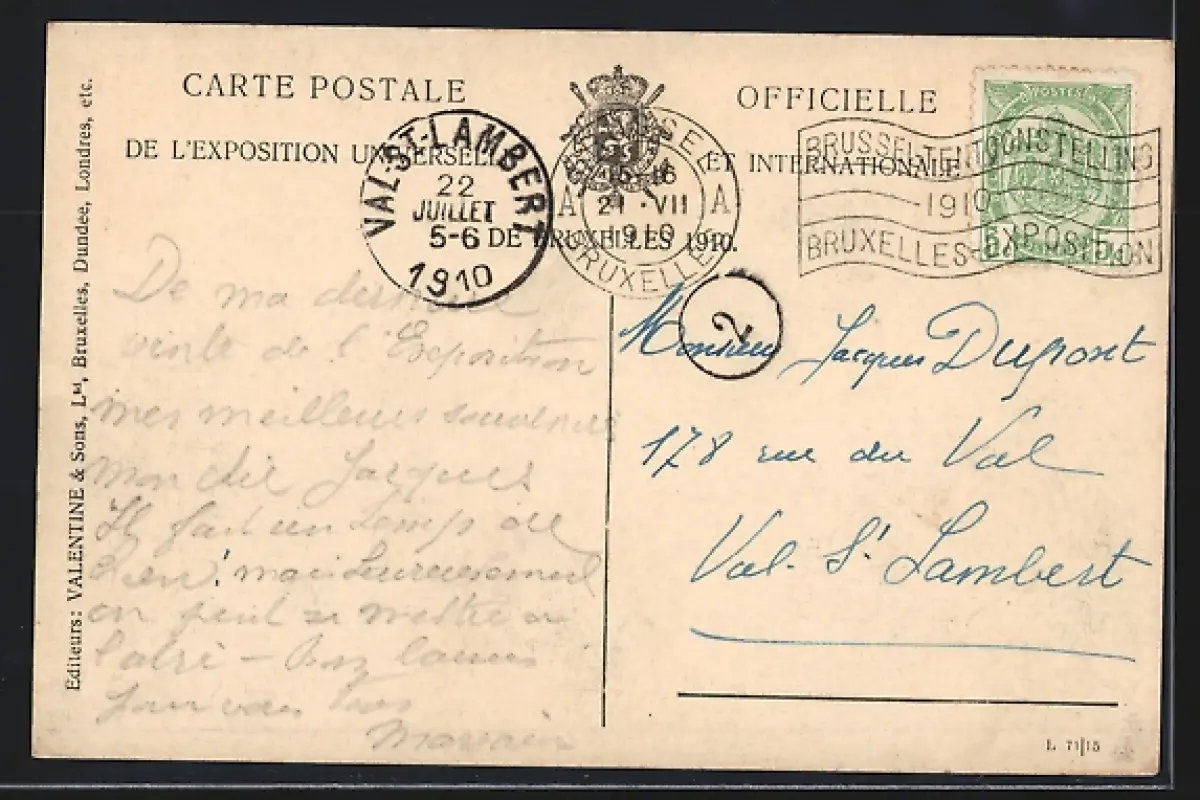 CARTE POSTALE OFFICIELLE
DE L'EXPOSITION UNIVERSELLE ET INTERNATIONALE
DE BRUXELLES 1910.
VAL-ST-LAMBERT
22
JUILLET
5-6
1910
BRUSSEL
15-16
A 21 · VII A
1910
BRUXELLES
BRUSSEL TENTOONSTELLING
1910
BRUXELLES-EXPOSITION
POSTES
5 5
2
Editeurs: VALENTINE & Sons, Ltd, Bruxelles, Dundee, Londres, etc.
De ma dernière
visite de l'Exposition
mes meilleurs souvenirs
mon cher Jacques
Il fait un temps de
chien! mais heureusement
on peut se mettre à
l'abri –
Marraine
Monsieur Jacques Dupont
178 rue du Val
Val-St Lambert
L 71|15